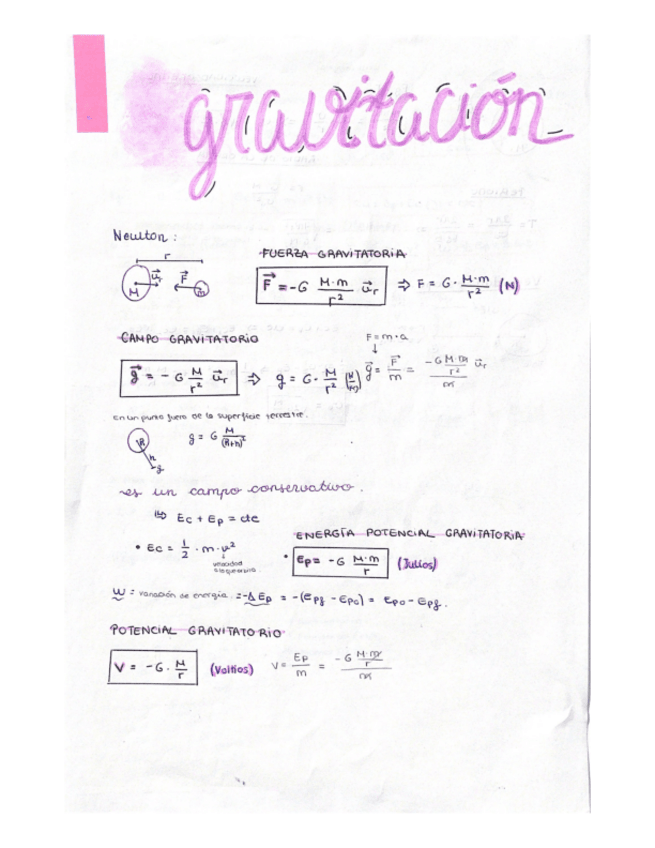 gravitación
Newton:
r
M u⃗r F⃗ m
FUERZA GRAVITATORIA
F⃗ = -G M·m/r² u⃗r ⇒ F = G· M·m/r² (N)
CAMPO GRAVITATORIO
F = m·a
↓
g⃗ = -G M/r² u⃗r ⇒ g = G· M/r² (N/kg)
g⃗ = F⃗/m = -G M·m/r² u⃗r / m
en un punto fuera de la superficie terrestre.
R h g
g = G M/(R+h)²
es un campo conservativo.
↳ Ec + Ep = cte
• Ec = 1/2 · m·v²
velocidad
ENERGÍA POTENCIAL GRAVITATORIA
• Ep = -G M·m/r (Julios)
W = variación de energía. = -ΔEp = -(Epf - Epo) = Epo - Epf.
POTENCIAL GRAVITATORIO
V = -G· M/r (Voltios) V = Ep/m = -G M·m/r / m